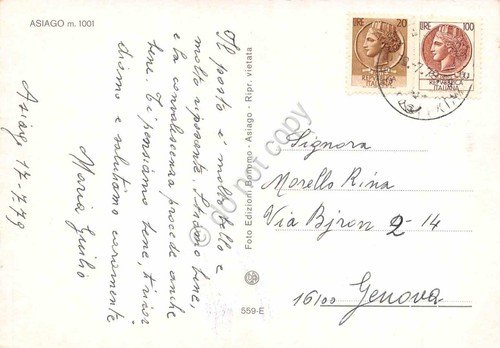 ASIAGO m. 1001
Il posto è molto bello e
molto riposante. Stiamo bene,
e la convalescenza procede anche
bene. Ti pensiamo tanto, ti ricor
diamo e salutiamo caramente
Maria Giulio
Asiago 17-7-79
Foto Edizioni Bonomo - Asiago - Ripr. vietata
559-E
LIRE 20
LIRE 100
REPUBBLICA
ITALIANA
Signora
Morello Rina
Via Bjron 2-14
16100 Genova
do not copy